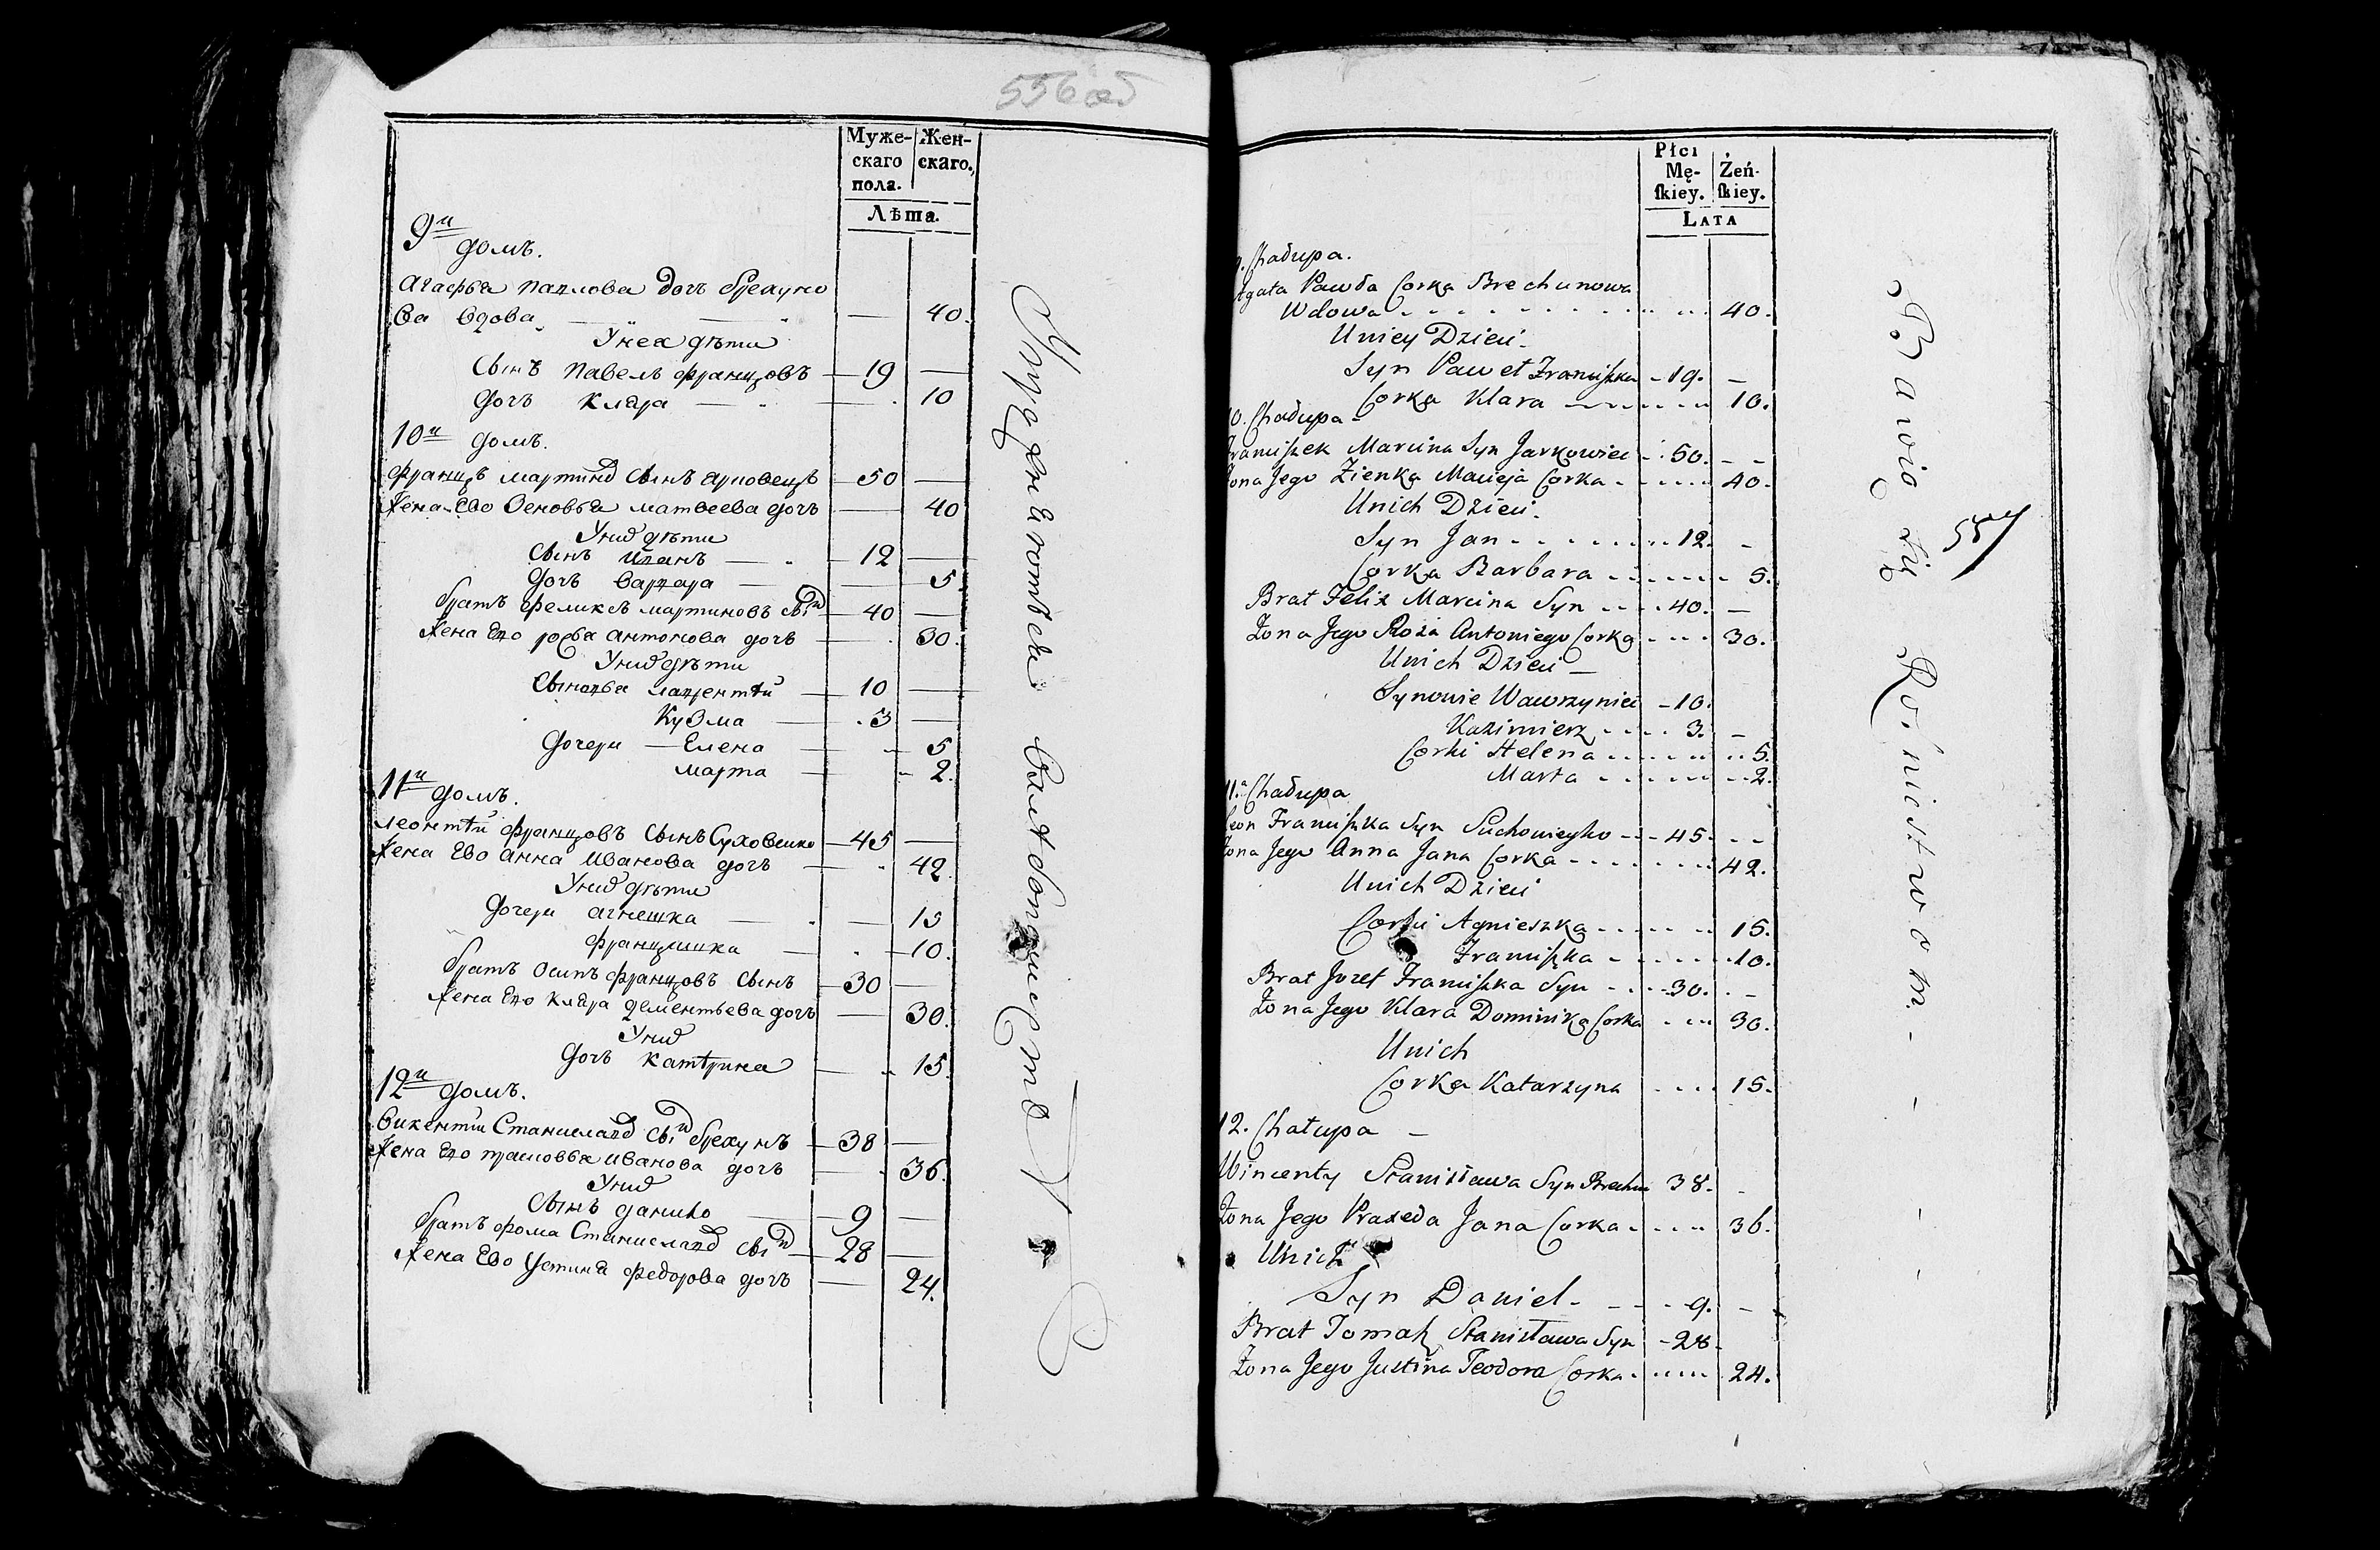 556 об
Муже-
скаго
пола.
Жен-
скаго.
Лѣта.
9й
домъ.
Агафья Павлова дочь Брехуно
ва вдова 40.
У нея дѣти
Сынъ Павелъ Францовъ 19
дочь Клара 10
10й домъ.
Францъ Мартина сынъ 50
Жена Ево Зеновья Матвеева дочь 40
У них дѣти
Сынъ Иванъ 12
дочь Варвара 5.
братъ Феликсъ Мартиновъ сын 40
Жена Ево Антонова дочь 30.
У них дѣти
Сыновья Лаврентѣй 10
Кузма 3
дочери Елена 5
Марта 2.
11й домъ.
Леонтѣй Францовъ сынъ 45
Жена Ево Анна Иванова дочь 42.
У них дѣти
дочери Агнешка 15
Францишка 10.
братъ Осипъ Францовъ сынъ 30
Жена Ево Клара Дементьева дочь 30.
У них
дочь Катѣрина 15.
12й домъ.
Викентѣи Станиславов сын Брехунъ 38
Жена Ево Прасковья Иванова дочь 36.
У них
Сынъ Данило 9
братъ Фома Станиславов сын 28
Жена Ево Устинья Федорова дочь 24.
Płci
Mę-
ſkiey.
Żeń-
ſkiey.
LATA
9. Chałupa.
Agata Pawła Corka Brechunowa
Wdowa 40.
U niey Dzieci
Syn Paweł Franciszka 19.
Corka Klara 10.
10. Chałupa
Franciszek Marcina Syn Jarkowiec 50.
Zona Jego Zienka Macieja Corka 40.
U nich Dzieci
Syn Jan 12.
Corka Barbara 5.
Brat Felix Marcina Syn 40.
Zona Jego Roza Antoniego Corka 30.
U nich Dzieci
Synowie Wawrzyniec 10.
Kazimierz 3.
Corki Helena 5.
Marta 2.
11. Chałupa
Leon Franciszka Syn Suchowieyko 45.
Zona Jego Anna Jana Corka 42.
U nich Dzieci
Corki Agnieszka 15.
Franciszka 10.
Brat Jozef Franciszka Syn 30.
Zona Jego Klara Dominika Corka 30.
U nich
Corka Katarzyna 15.
12. Chałupa
Wincenty Stanisława Syn Brechun 38.
Zona Jego Praxeda Jana Corka 36.
U nich
Syn Daniel 9.
Brat Tomasz Stanisława Syn 28.
Zona Jego Justina Teodora Corka 24.
Bawią się Rolnictwom.
557